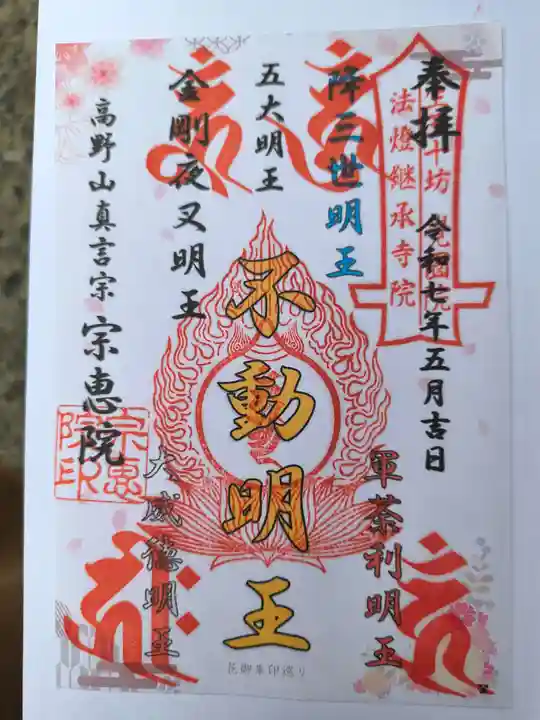 奉拝
令和七年五月吉日
法燈継承寺院
降三世明王
軍荼利明王
五大明王
不動明王
金剛夜叉明王
大威徳明王
高野山真言宗 宗恵院
宗恵院印
花御朱印巡り